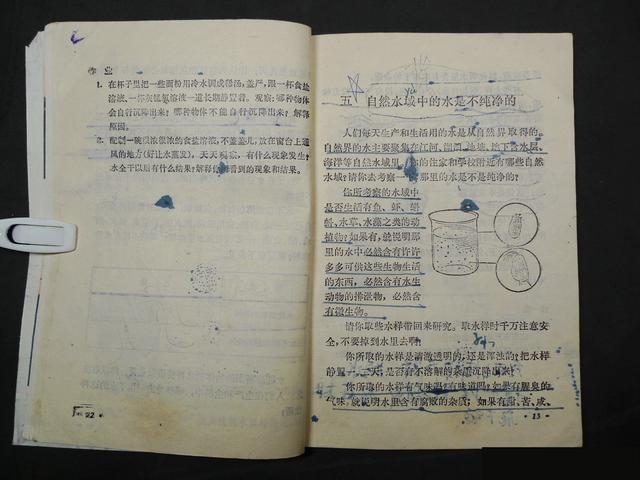 作 业
1. 在杯子里把一些面粉用冷水调成稀汤，盖严，跟一杯食盐
溶液、一杯灰锰氧溶液一道长期静置着。观察：哪种物体
会自行沉降出来？哪种物体不能自行沉降出来？解释
原因。
2. 配制一碗很浓很浓的食盐溶液，不盖盖儿，放在窗台上通
风的地方(好让水蒸发)，天天观察，有什么现象发生？
水全干以后有什么结果？解释你所看到的现象和结果。
22
五 自然水域中的水是不纯净的
人们每天生产和生活用的水是从自然界取得的。
自然界的水主要聚集在江河、湖泊、池塘、地下含水层、
海洋等自然水域里。你的住家和学校附近有哪些自然
水域？请你去考察一下，那里的水是不是纯净的？
你所考察的水域中
是否生活有鱼、虾、蝌
蚪、水草、水藻之类的动
植物？如果有，就说明那
里的水中必然含有许许
多多可供这些生物生活
的东西，必然含有水生
动物的排泄物，必然含
有微生物。
请你取些水样带回来研究。取水样时千万注意安
全，不要掉到水里去啊！
你所取的水样是清澈透明的，还是浑浊的？把水样
静置一、二天，是否有不溶解的杂质沉降出来？
你所取的水样有气味吗？有味道吗？如果有腥臭的
气味，就说明水里含有腐败的杂质；如果有甜、苦、咸、
· 13 ·